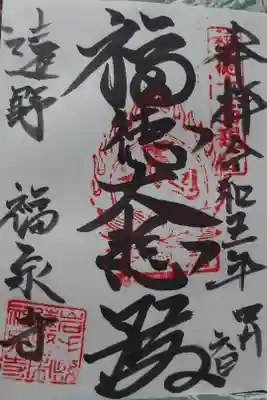 奉拝 令和五年 四月六日
福徳大悲殿
遠野 福泉寺